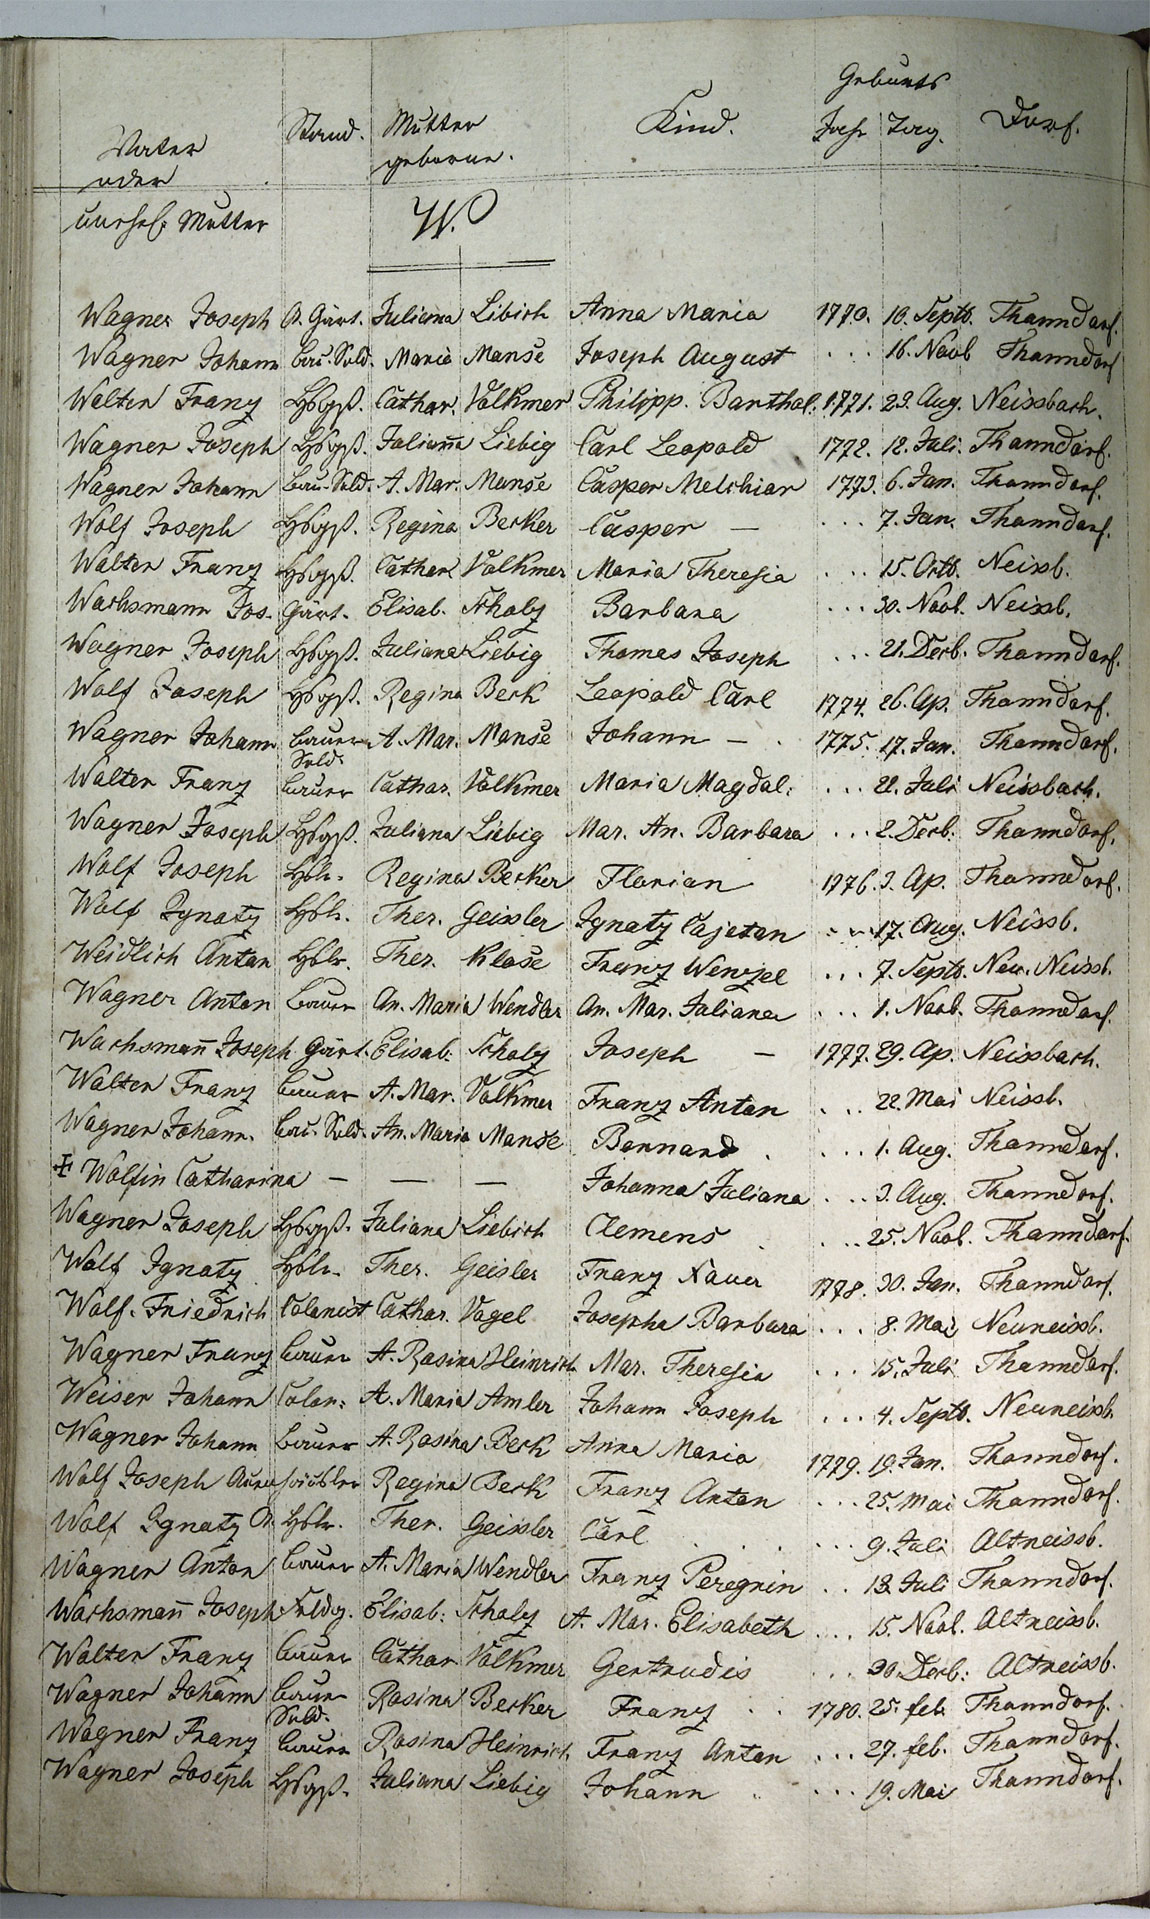 Geburts
Vater Stand. Mutter Kind. Jahr Tag. Dorf.
oder geborne.
unehel. Mutter W.
Wagner Joseph A. Gärt. Juliana Libich Anna Maria 1770. 10. Septb. Thanndorf.
Wagner Johann Bau. Sold. Maria Manse Joseph August . . . 16. Novb Thanndorf
Walter Franz Hbgß. Cathar. Volkmer Philipp. Barthol. 1771. 23. Aug. Neissbach.
Wagner Joseph Hbgß. Juliana Liebig Carl Leopold 1772. 12. Juli. Thanndorf.
Wagner Johann Bau. Sold. A. Mar. Manse Casper Melchior 1773. 6. Jan. Thanndorf.
Wolf Joseph Hbgß. Regina Becker Casper — . . . 7. Jan. Thanndorf.
Walter Franz Hbgß. Cathar. Volkmer Maria Theresia . . . 15. Octb. Neissb.
Wachsmann Jos. Gärt. Elisab. Scholz Barbara . . . 30. Novb. Neissb.
Wagner Joseph Hbgß. Juliana Liebig Thomas Joseph . . . 21. Decb. Thanndorf.
Wolf Joseph Hbgß. Regina Beck Leopold Carl 1774. 26. Ap. Thanndorf.
Wagner Johann Bauer A. Mar. Manse Johann — . 1775. 17. Jan. Thanndorf.
Sold.
Walter Franz Bauer Cathar. Volkmer Maria Magdal: . . . 22. Juli Neissbach.
Wagner Joseph Hbgß. Juliana Liebig Mar. An. Barbara . . . 2. Decb. Thanndorf.
Wolf Joseph Hblr. Regina Becker Florian 1776. 3. Ap. Thanndorf.
Wolf Ignatz Hblr. Ther. Geissler Ignatz Cajetan . . . 17. Aug. Neissb.
Weidlich Anton Hblr. Ther. Klose Franz Wenzel . . . 7. Septb. Neu. Neissb.
Wagner Anton Bauer An. Maria Wendler An. Mar. Juliana . . . 1. Novb. Thanndorf.
Wachsmann̄ Joseph Gärt. Elisab: Scholz Joseph — 1777. 29. Ap. Neissbach.
Walter Franz Bauer A. Mar. Volkmer Franz Anton . . . 22. Mai Neissb.
Wagner Johann. Bau. Sold. An. Maria Manse Bernard . . . . 1. Aug. Thanndorf.
Wolfin Catharina — — — Johanna Juliana . . . 3. Aug. Thanndorf.
Wagner Joseph Hbgß. Juliana Liebich Clemens . . . . 25. Novb. Thanndorf.
Wolf Ignatz Hblr. Ther. Geisler Franz Xaver 1778. 30. Jan. Thanndorf.
Wolf. Friedrich Colonist Cathar. Vogel Josepha Barbara . . . 8. Mai Neuneissb.
Wagner Franz Bauer A. Rosina Heinrich Mar. Theresia . . . 15. Juli Thanndorf.
Weiser Johann Colon: A. Maria Amler Johann Joseph . . . 4. Septb. Neuneissb.
Wagner Johann Bauer A. Rosina Beck Anna Maria 1779. 19. Jan. Thanndorf.
Wolf Joseph Auenhäusler Regina Beck Franz Anton . . . 25. Mai Thanndorf.
Wolf Ignatz A. Hblr. Ther. Geissler Carl . . . . . . 9. Juli Altneissb.
Wagner Anton Bauer A. Maria Wendler Franz Peregrin . . . 13. Juli Thanndorf.
Wachsmann̄ Joseph Feldg. Elisab: Scholz A. Mar. Elisabeth . . . 15. Novb. Altneissb.
Walter Franz Bauer Cathar. Volkmer Gertrudis . . . 30. Decb: Altneissb.
Wagner Johann Bauer Rosina Becker Franz . . 1780. 25. feb. Thanndorf.
Sold.
Wagner Franz Bauer Rosina Heinrich Franz Anton . . . 27. feb. Thanndorf.
Wagner Joseph Hbgß. Juliana Liebig Johann . . . . 19. Mai Thanndorf.